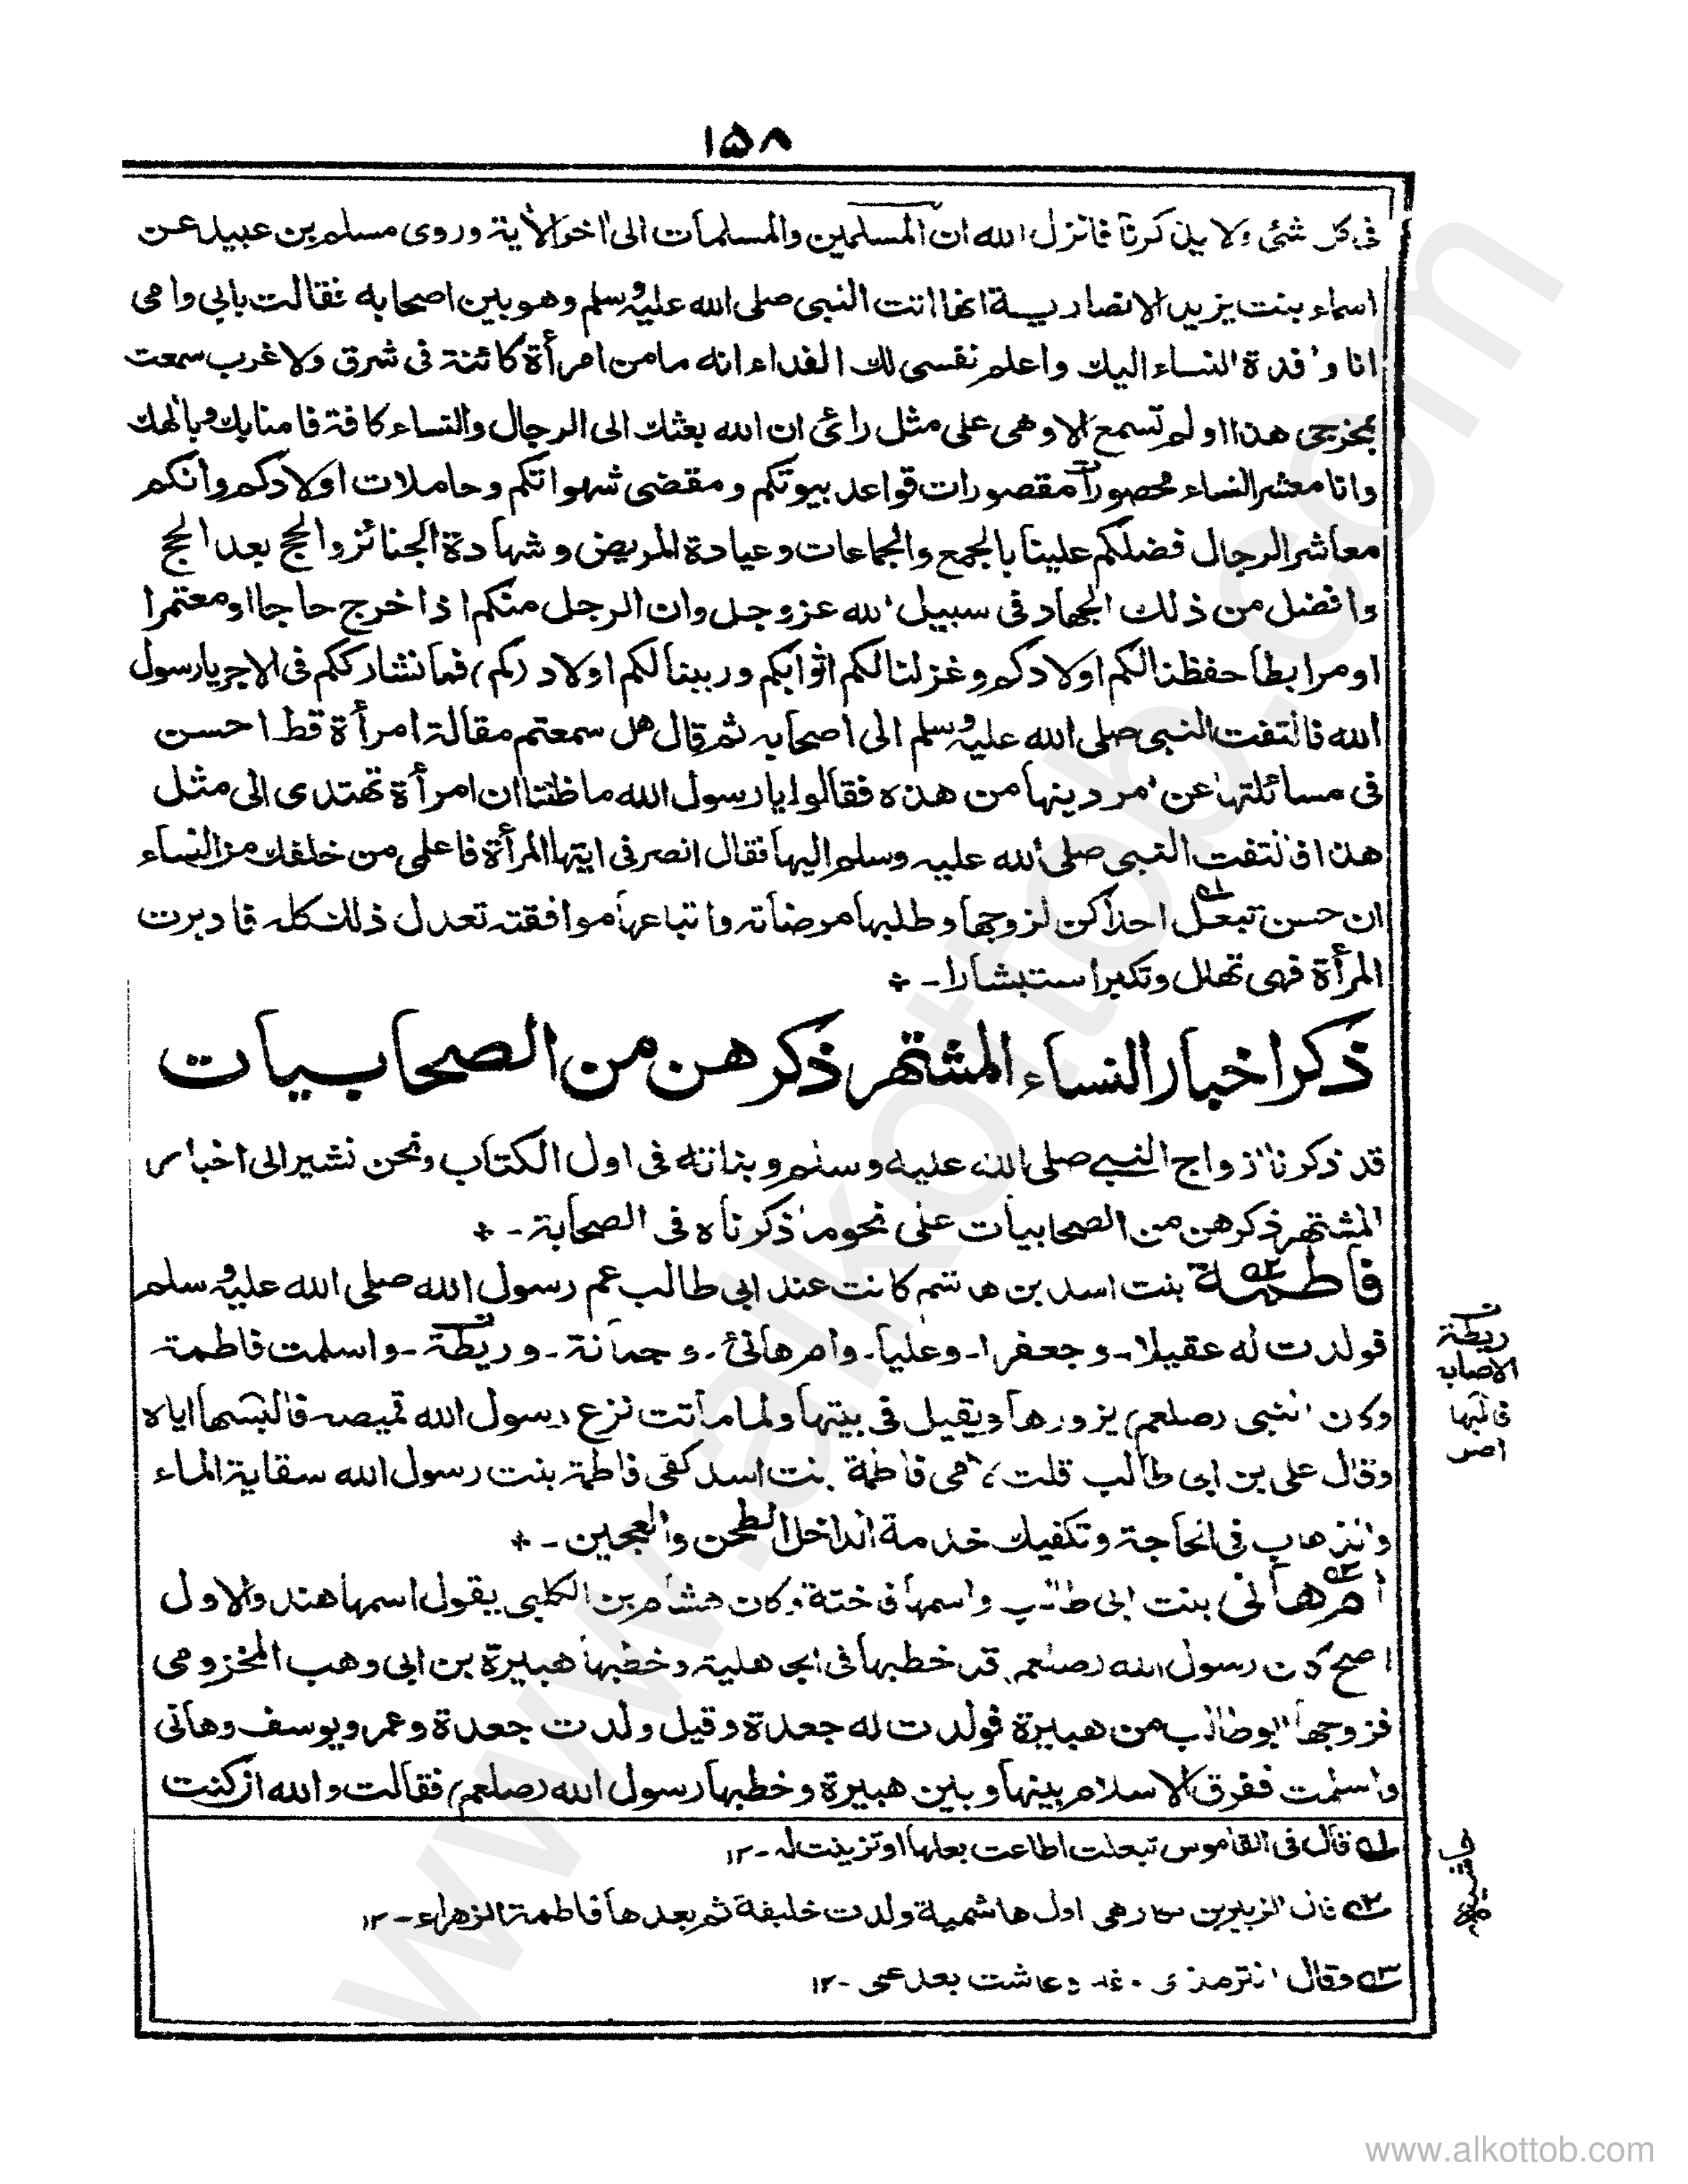 ١٥٨
فى كل شئى ولا يذكرنا فانزل الله ان المسلمين والمسلمات الى اخر الاية وروى مسلم بن عبيد عن
اسماء بنت يزيد الانصارية انها اتت النبى صلى الله عليه وسلم وهو بين اصحابه فقالت بابى وامى
انا وافدة النساء اليك واعلم نفسى لك الفداء انه ما من امرأة كائنة فى شرق ولا غرب سمعت
بمخرجى هذا او لم تسمع الا وهى على مثل رائى ان الله بعثك الى الرجال والنساء كافة فامنا بك وبالهك
وانا معشر النساء محصورات مقصورات قواعد بيوتكم ومقضى شهواتكم وحاملات اولادكم وانكم
معاشر الرجال فضلكم علينا بالجمع والجماعات وعيادة المريض وشهادة الجنائز والحج بعد الحج
وافضل من ذلك الجهاد فى سبيل الله عزوجل وان الرجل منكم اذا خرج حاجا او معتمرا
او مرابطا حفظنا لكم اولادكم وغزلنا لكم اثوابكم وربينا لكم اولادكم فما نشارككم فى الاجر يا رسول
الله فالتفت النبى صلى الله عليه وسلم الى اصحابه ثم قال هل سمعتم مقالة امرأة قط احسن
فى مسائلتها عن امر دينها من هذه فقالوا يا رسول الله ما ظننا ان امرأة تهتدى الى مثل
هذا فالتفت النبى صلى الله عليه وسلم اليها فقال انصرفى ايتها المرأة فاعلمى من خلفك من النساء
ان حسن تبعل ١ احداكن لزوجها وطلبها مرضاته واتباعها موافقته تعدل ذلك كله فادبرت
المرأة فهى تهلل وتكبر استبشارا - ÷
ذكر اخبار النساء المشتهر ذكرهن من الصحابيات
قد ذكرنا ازواج النبى صلى الله عليه وسلم وبناته فى اول الكتاب ونحن نشير الى اخبار
المشتهر ذكرهن من الصحابيات على نحو ما ذكرناه فى الصحابة - ÷
فاطمة ٢ بنت اسد بن هاشم كانت عند ابى طالب عم رسول الله صلى الله عليه وسلم
فولدت له عقيلا - وجعفرا - وعليا - وام هانئ - وجمانة - وريطة - واسلمت فاطمة
وكان النبى (صلعم) يزورها ويقيل فى بيتها ولما ماتت نزع رسول الله قميصه فالبسها اياه
وقال على بن ابى طالب قلت لامى فاطمة بنت اسد كفى فاطمة بنت رسول الله سقاية الماء
والذهاب فى الحاجة وتكفيك خدمة الداخل الطحن والعجين - ÷
ام هانى ٣ بنت ابى طالب واسمها فاختة وكان هشام بن الكلبى يقول اسمها هند والاول
اصح كان رسول الله (صلعم) قد خطبها فى الجاهلية وخطبها هبيرة بن ابى وهب المخزومى
فزوجها ابو طالب من هبيرة فولدت له جعدة وقيل ولدت جعدة وعمر ويوسف وهانى
واسلمت ففرق الاسلام بينها وبين هبيرة وخطبها رسول الله (صلعم) فقالت والله ان كنت
ن
ريطة
الاصابه
اصر
حاشيه
١ قال فى القاموس تبعلت اطاعت بعلها او تزينت له - ١٢
٢ قال الزبير بن بكار هى اول هاشمية ولدت خليفة ثم بعدها فاطمة الزهراء - ١٢
٣ وقال الترمذى وعاشت بعد على - ١٢
www.alkottob.com
www.alkottob.com